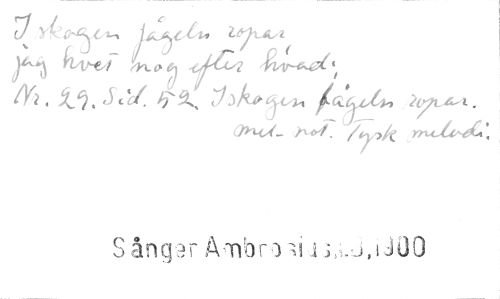 I skogen fågeln ropar
jag hvet nog efter hvad;
Nr. 29. Sid. 52 I skogen fågeln ropar.
mel- not. Tysk melodi.
Sånger Ambrosius, 1900